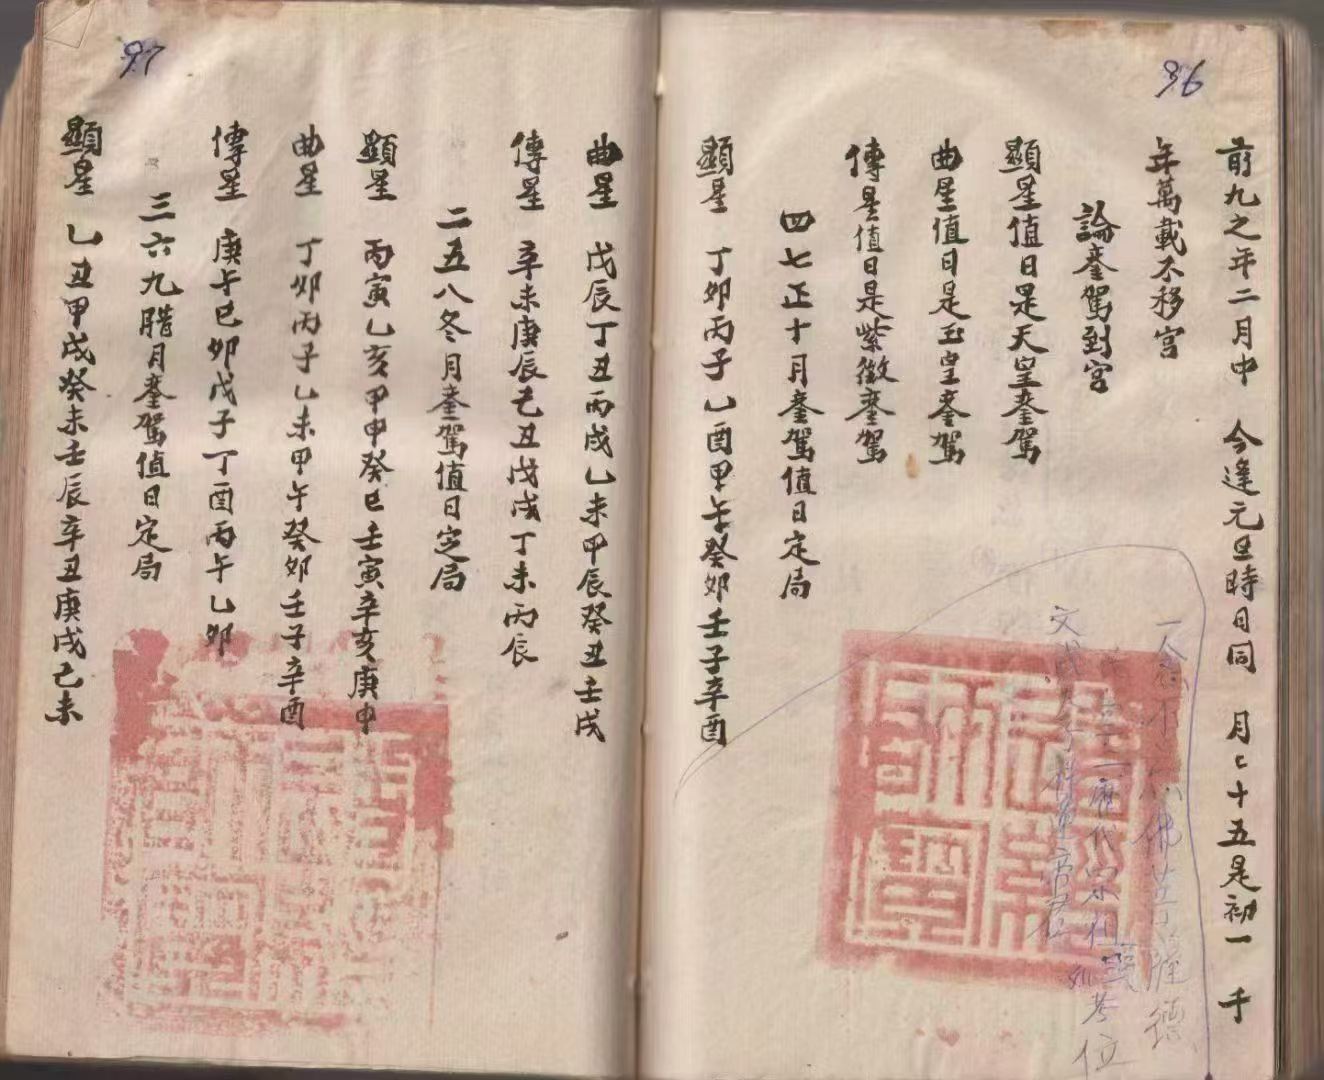 96
前九之年二月中 今逢元旦時日同 月七十五是初一 千
年萬載不移宮
論鑾駕到宮
顯星值日是天皇鑾駕
曲星值日是玉皇鑾駕
傳星值日是紫微鑾駕
四七正十月鑾駕值日定局
顯星 丁卯丙子乙酉甲午癸卯壬子辛酉
97
曲星 戊辰丁丑丙戌乙未甲辰癸丑壬戌
傳星 辛未庚辰己丑戊戌丁未丙辰
二五八冬月鑾駕值日定局
顯星 丙寅乙亥甲申癸巳壬寅辛亥庚申
曲星 丁卯丙子乙未甲午癸卯壬子辛酉
傳星 庚午己卯戊子丁酉丙午乙卯
三六九腊月鑾駕值日定局
顯星 乙丑甲戌癸未壬辰辛丑庚戌己未